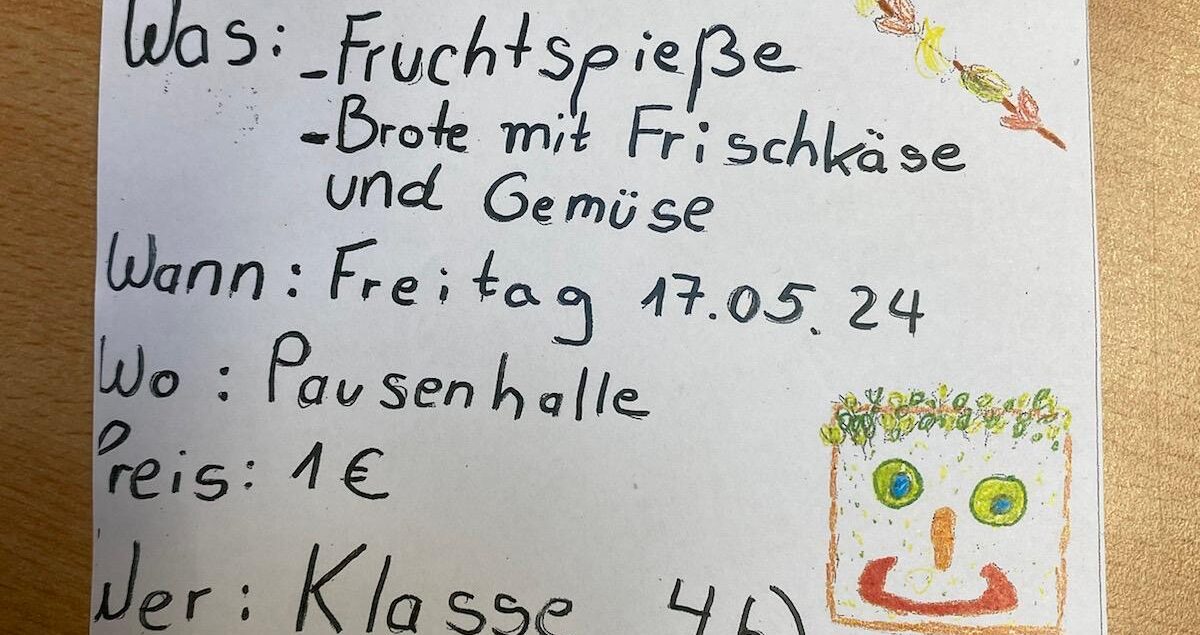 Was: -Fruchtspieße
-Brote mit Frischkäse
und Gemüse
Wann: Freitag 17.05.24
Wo: Pausenhalle
Preis: 1€
Wer: Klasse 4b)